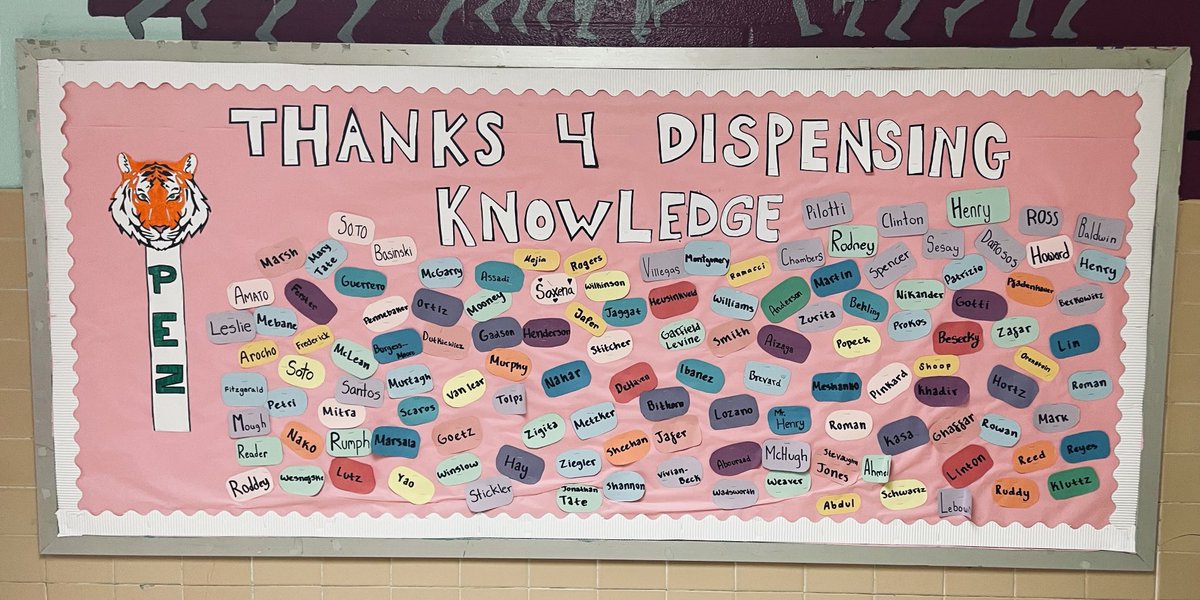 THANKS 4 DISPENSING
KNOWLEDGE
PEZ
Pilotti
Clinton
Henry
ROSS
Baldwin
SOTO
Basinski
Marsh
Mary
Tate
Guerrero
McGarry
Assadi
Mejia
Rogers
Villegas
Montgomery
Ramacci
Chambers
Rodney
Spencer
Sesay
Howard
Henry
AMATO
Ferster
Pennebaker
Ortiz
Mooney
Saxena
Wilkinson
Heusinkveld
Williams
Anderson
Martin
Behling
Nikander
Patrizio
Gotti
Pfadenhauer
Berkowitz
Leslie
Mebane
Frederick
Burgess-
Moore
Dutkiewicz
Gadson
Henderson
Jafer
Jaggat
Stitcher
Garfield
Levine
Smith
Aizaga
Zurita
Popeck
Prokos
Besecky
Zafar
Lin
Arocho
Soto
McLean
Murtagh
Van lear
Murphy
Nakar
DeHaven
Ibanez
Brevard
Meshanko
Pinkard
Shoop
Khadir
Hortz
Orenstein
Roman
Fitzgerald
Petri
Santos
Mitra
Scaros
Tolpa
Bithorn
Lozano
Mr.
Henry
Roman
Kasa
Ghaffar
Rowan
Mark
Mough
Reader
Nako
Rumph
Marsala
Goetz
Zigita
Metzker
Sheehan
Jafer
Abouraad
McHugh
Stevaughn
Jones
Ahmed
Linton
Reed
Reyes
Roddey
Wesnofske
Lutz
Yao
Winslow
Hay
Stickler
Ziegler
Jonathan
Tate
Shannon
Vivian-
Beck
Wadsworth
Weaver
Abdul
Schwartz
Ruddy
Kluttz